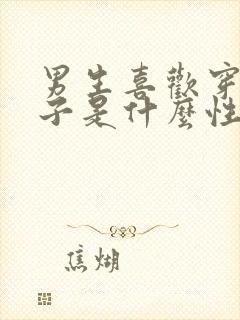 男生喜歡穿
子是什麼性
焦煳